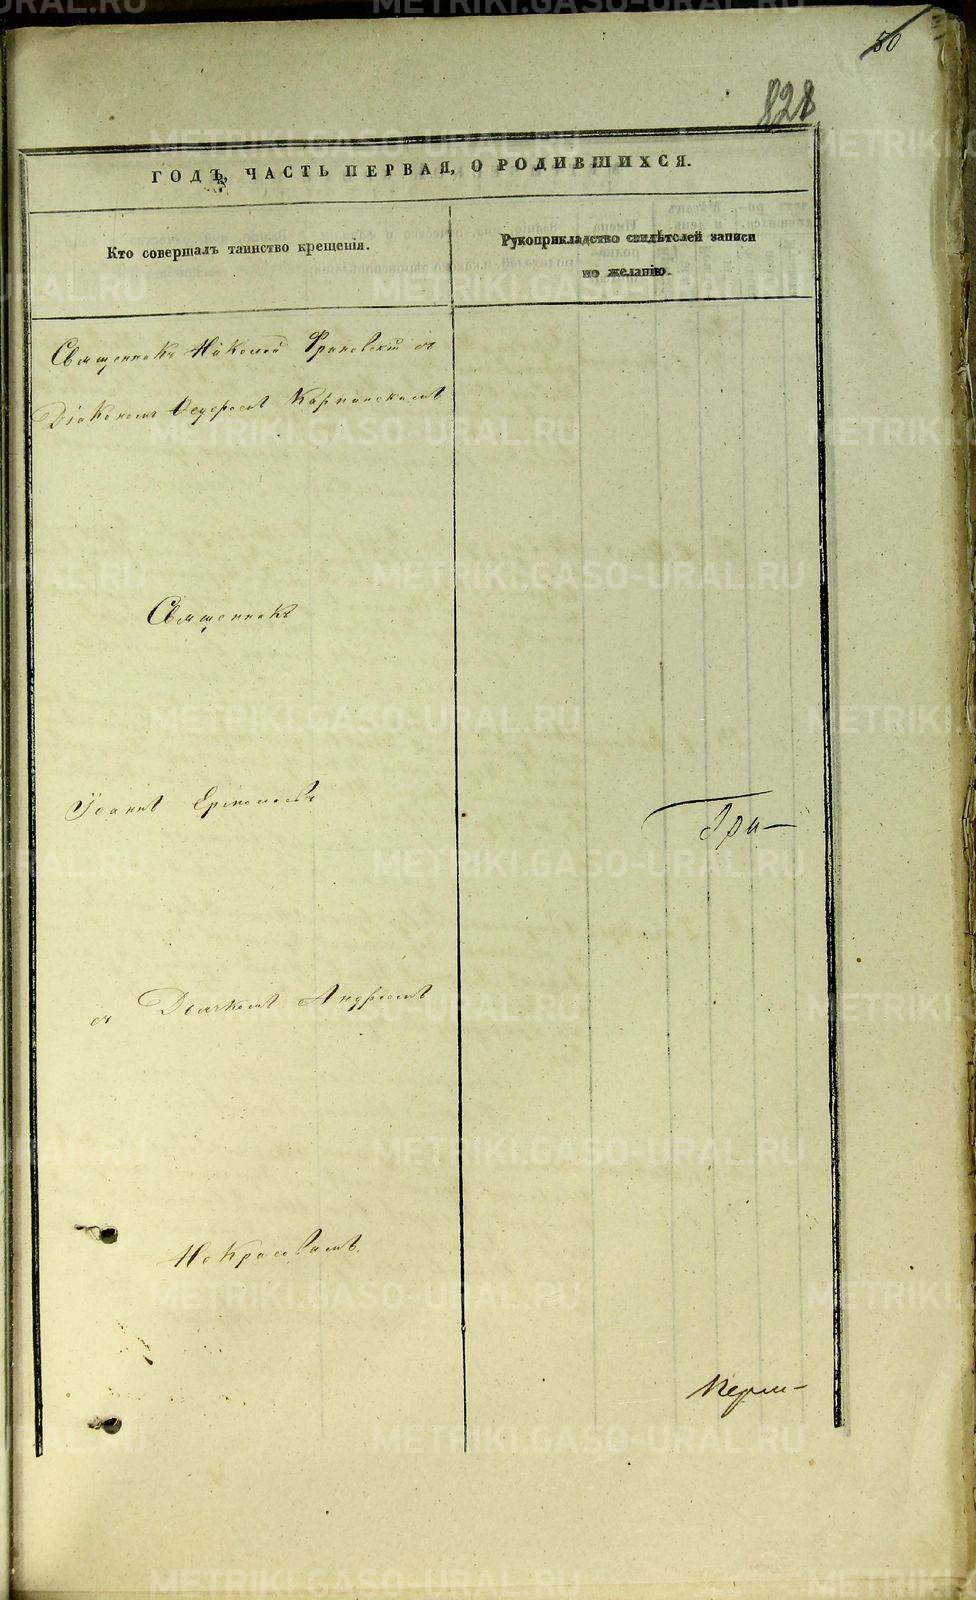 50
828
ГОДЪ, ЧАСТЬ ПЕРВАЯ, О РОДИВШИХСЯ.
Кто совершалъ таинство крещенія.
Рукоприкладство свидѣтелей записи
по желанію.
Священникъ Николай съ
Діакономъ Ѳедоромъ
Священникъ
Іоаннъ
Гри-
съ Дьячкомъ Андреемъ
Некрасовымъ.
Перм-
METRIKI.GASO-URAL.RU